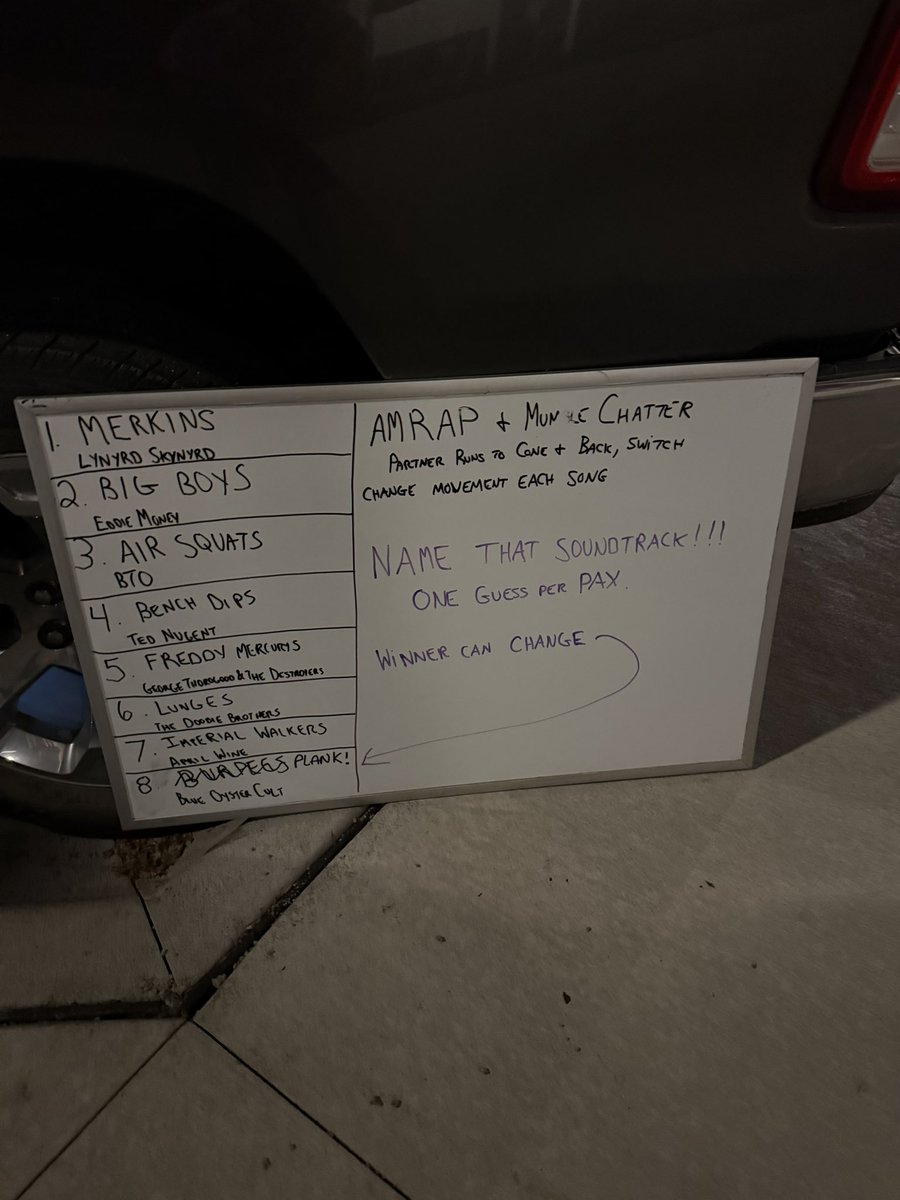 1. MERKINS
LYNYRD SKYNYRD
2. BIG BOYS
EDDIE MONEY
3. AIR SQUATS
BTO
4. BENCH DIPS
TED NUGENT
5. FREDDY MERCURYS
GEORGE THOROGOOD & THE DESTROYERS
6. LUNGES
THE DOOBIE BROTHERS
7. IMPERIAL WALKERS
APRIL WINE
8 BURPEES PLANK!
BLUE OYSTER CULT
AMRAP + CHATTER
PARTNER RUNS TO CONE + BACK, SWITCH
CHANGE MOVEMENT EACH SONG
NAME THAT SOUNDTRACK!!!
ONE GUESS PER PAX.
WINNER CAN CHANGE